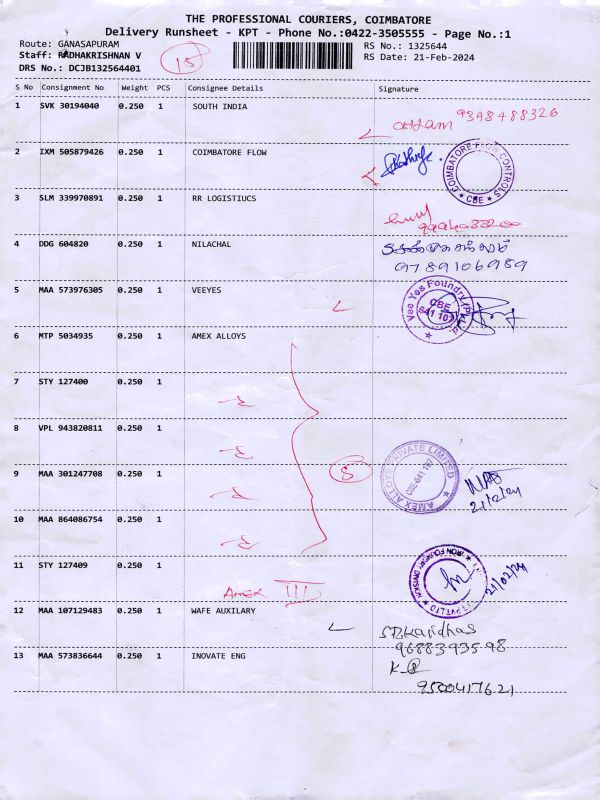 THE PROFESSIONAL COURIERS, COIMBATORE
Delivery Runsheet - KPT - Phone No.:0422-3505555 - Page No.:1
Route: GANASAPURAM
RS No.: 1325644
Staff: RADHAKRISHNAN V
RS Date: 21-Feb-2024
DRS No.: DCJB132564401
15
S No Consignment No Weight PCS Consignee Details Signature
1 SVK 30194040 0.250 1 SOUTH INDIA
9348488326
2 IXM 505879426 0.250 1 COIMBATORE FLOW
COIMBATORE FLOW CONTROLS ★ CBE ★
3 SLM 339970891 0.250 1 RR LOGISTIUCS
4 DDG 604820 0.250 1 NILACHAL
9789106989
5 MAA 573976305 0.250 1 VEEYES
Vee Yes Foundry (P) Ltd. CBE 641 107 ★
6 MTP 5034935 0.250 1 AMEX ALLOYS
7 STY 127400 0.250 1
8 VPL 943820811 0.250 1
9 MAA 301247708 0.250 1
5
AMEX ALLOYS PRIVATE LIMITED ★ CBE-641 107
21/2/24
10 MAA 864086754 0.250 1
11 STY 127409 0.250 1
Amex III
IRON FOUNDRY DIVISION
21/02/24
12 MAA 107129483 0.250 1 WAFE AUXILARY
9688393598
13 MAA 573836644 0.250 1 INOVATE ENG
9500417621